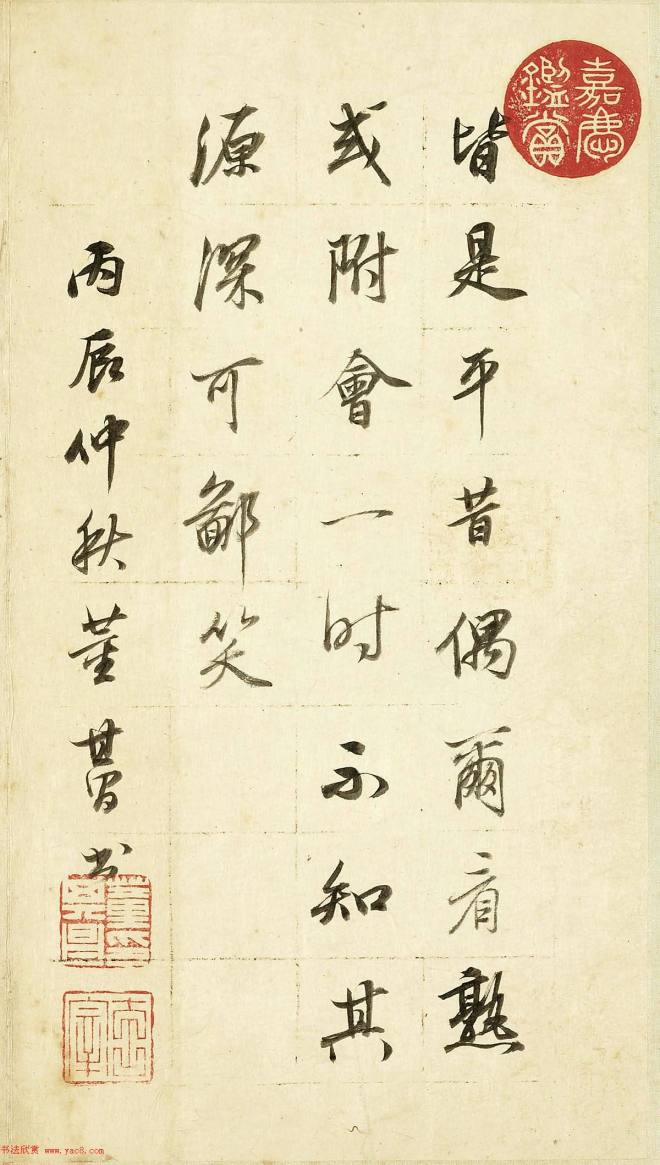 嘉慶鑑賞
皆是平昔偶爾看熟
或附會一时不知其
源深可鄙笑
丙辰仲秋董其昌书
董其昌印
书法欣赏 www.yac8.com